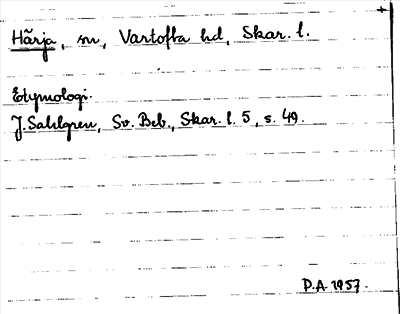 Härja, sn, Vartofta hd, Skar. l.
Etymologi:
J. Sahlgren, Sv. Beb., Skar. l. 5, s. 49.
P.A. 1957.